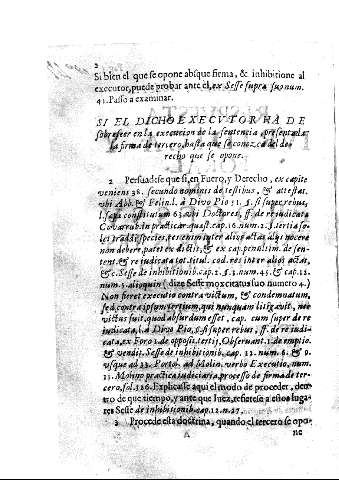 2
Si bien el que se opone absque firma, & inhibitione al
executor, puede probar ante el, ex Sesse supra suo num.
41. Passo a examinar.
SI EL DICHO EXECUTOR HA DE
sobreseer en la execucion de la sentencia, presentada
la firma de tercero, hasta que se conozca del de-
recho que se opone.
2 Persuadese que si, en Fuero, y Derecho, ex capite
veniens 38. secundo nominis de testibus, & attestat.
ubi Abb. & Felin. l. à Divo Pio 15. §. si super rebus,
l. sæpe constitutum 63. ubi Doctores, ff. de re iudicata
Covarrub. in practicar. quæst. cap. 16. num. 2. §. tertia so-
let tradi species, res enim inter alios acta, alijs nocere
non debere, patet ex dictis, & ex cap. penultim. de sen-
tent. & re iudicata tot. titul. cod. res inter alios actas,
&c. Sesse de inhibitionib. cap. 2. §. 3. num. 45. & cap. 12.
num. 5. alioquin (dize Sesse mox citatus suo numero 4.)
Non fieret executio contra victum, & condemnatum,
sed contra ipsum tertium, qui nunquam litigavit, nec
victus fuit, quod absurdum esset, cap. cum super de re
iudicata, l. à Divo Pio, §. si super rebus, ff. de re iudi-
cata, ex Foro 2. de opposit. tertij, Observant. 1. de emptio.
& vendit. Sesse de inhibitionib. cap. 12. num. 6. & 9.
usque ad 22. Portol. ad Molin. verbo Executio, num.
13. Molino practica iudiciaria, processo de firma de ter-
cero, fol. 326. Explicasse aqui el modo de proceder, den-
tro de que tiempo, y ante que Iuez, refierese a estos luga-
res Sesse de inhibitionib. cap. 12. n. 27.
3 Procede esta doctrina, quando el tercero se opo-
A ne